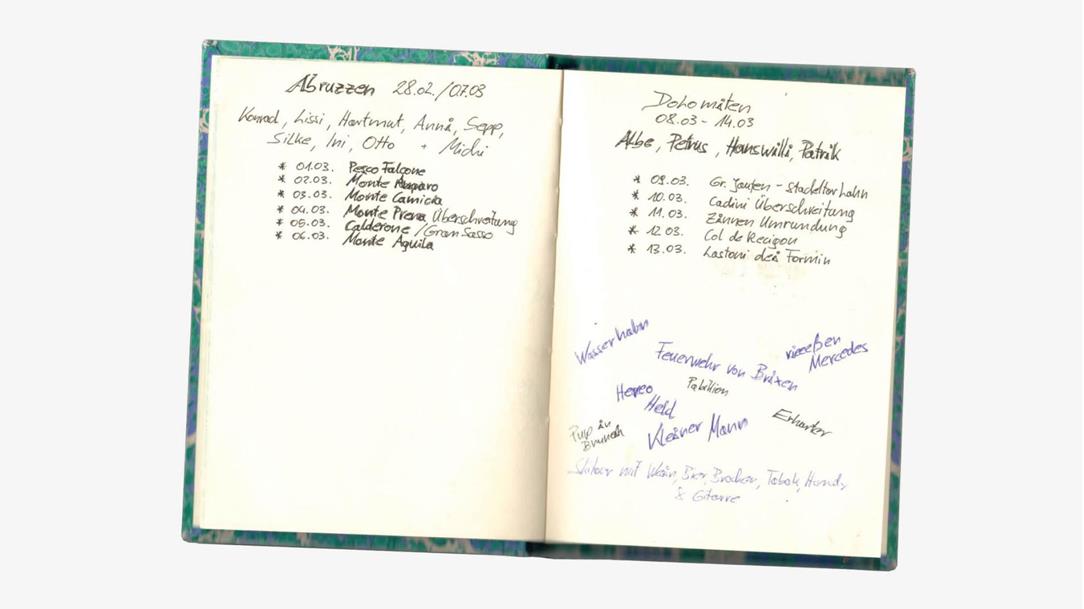 Abruzzen 28.02./07.03
Konrad, Lissi, Hartmut, Anna, Sepp,
Silke, Ini, Otto + Michi
* 01.03. Pesco Falcone
* 02.03. Monte Amaro
* 03.03. Monte Camicia
* 04.03. Monte Prena Überschreitung
* 05.03. Calderone / Gran Sasso
* 06.03. Monte Aquila
Dolomiten
08.03 - 14.03
Albe, Petrus, Hanswilli, Patrik
* 09.03. Gr. Jaufen -
* 10.03. Cadini Überschreitung
* 11.03. Zinnen Umrundung
* 12.03. Col de Recigou
* 13.03. Lastoni dei Formin
Wasserhahn
Feuerwehr von Brixen
Mercedes
Held
Erharter
Kleiner Mann
mit Wein, Bier, Tabak,
& Gitarre